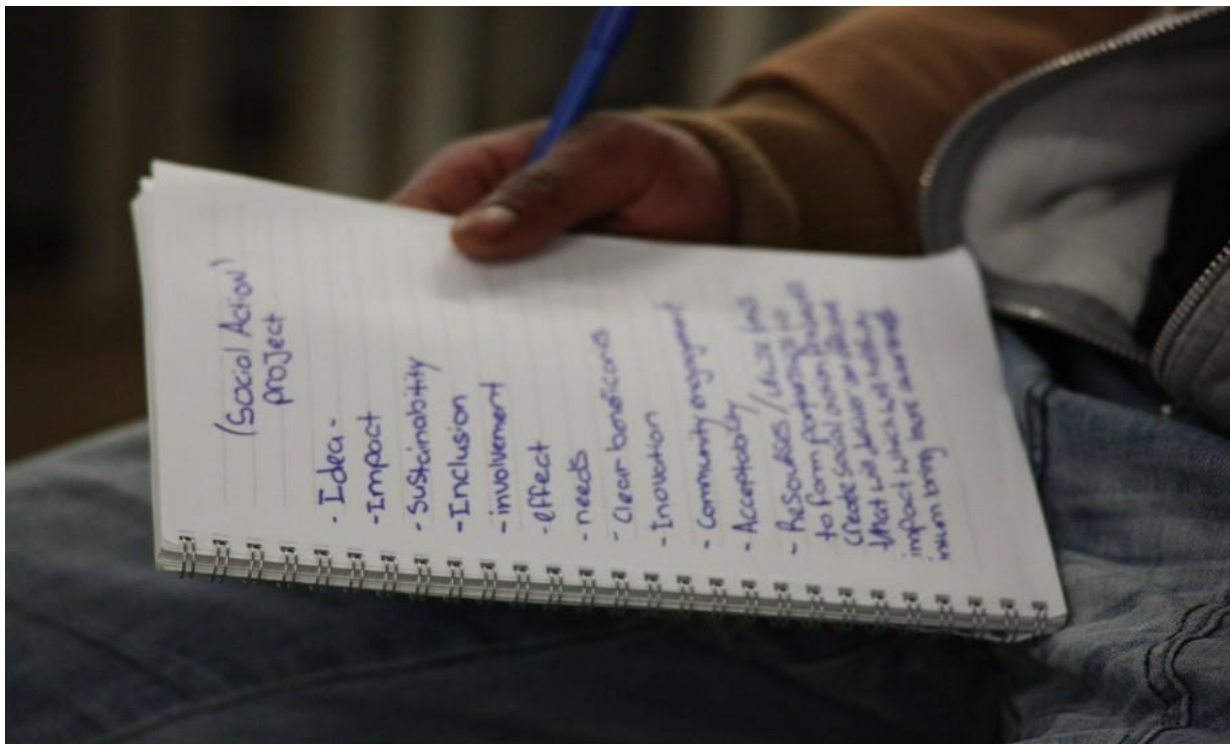 (Social Action)
project
- Idea -
- Impact
- Sustainability
- Inclusion
- involvement
- effect
- needs
- Clear
- Inovation
- Community engagement
- Acceptability
- Resourses /
to form partnerships to
create social action
that will deliver an
impact which will
bring more